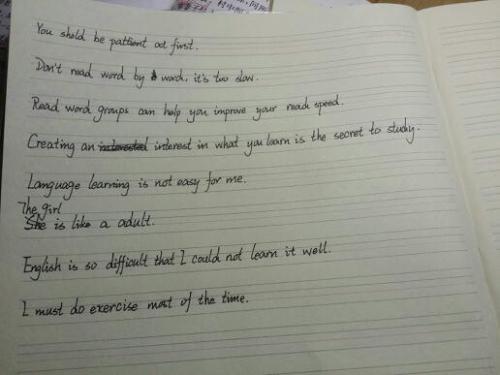 You shold be pattient at first.
Don't read word by word, it's too slow.
Read word groups can help you improve your read speed.
Creating an interested interest in what you learn is the secret to study.
Language learning is not easy for me.
The girl
She is like a adult.
English is so difficult that I could not learn it well.
I must do exercise most of the time.